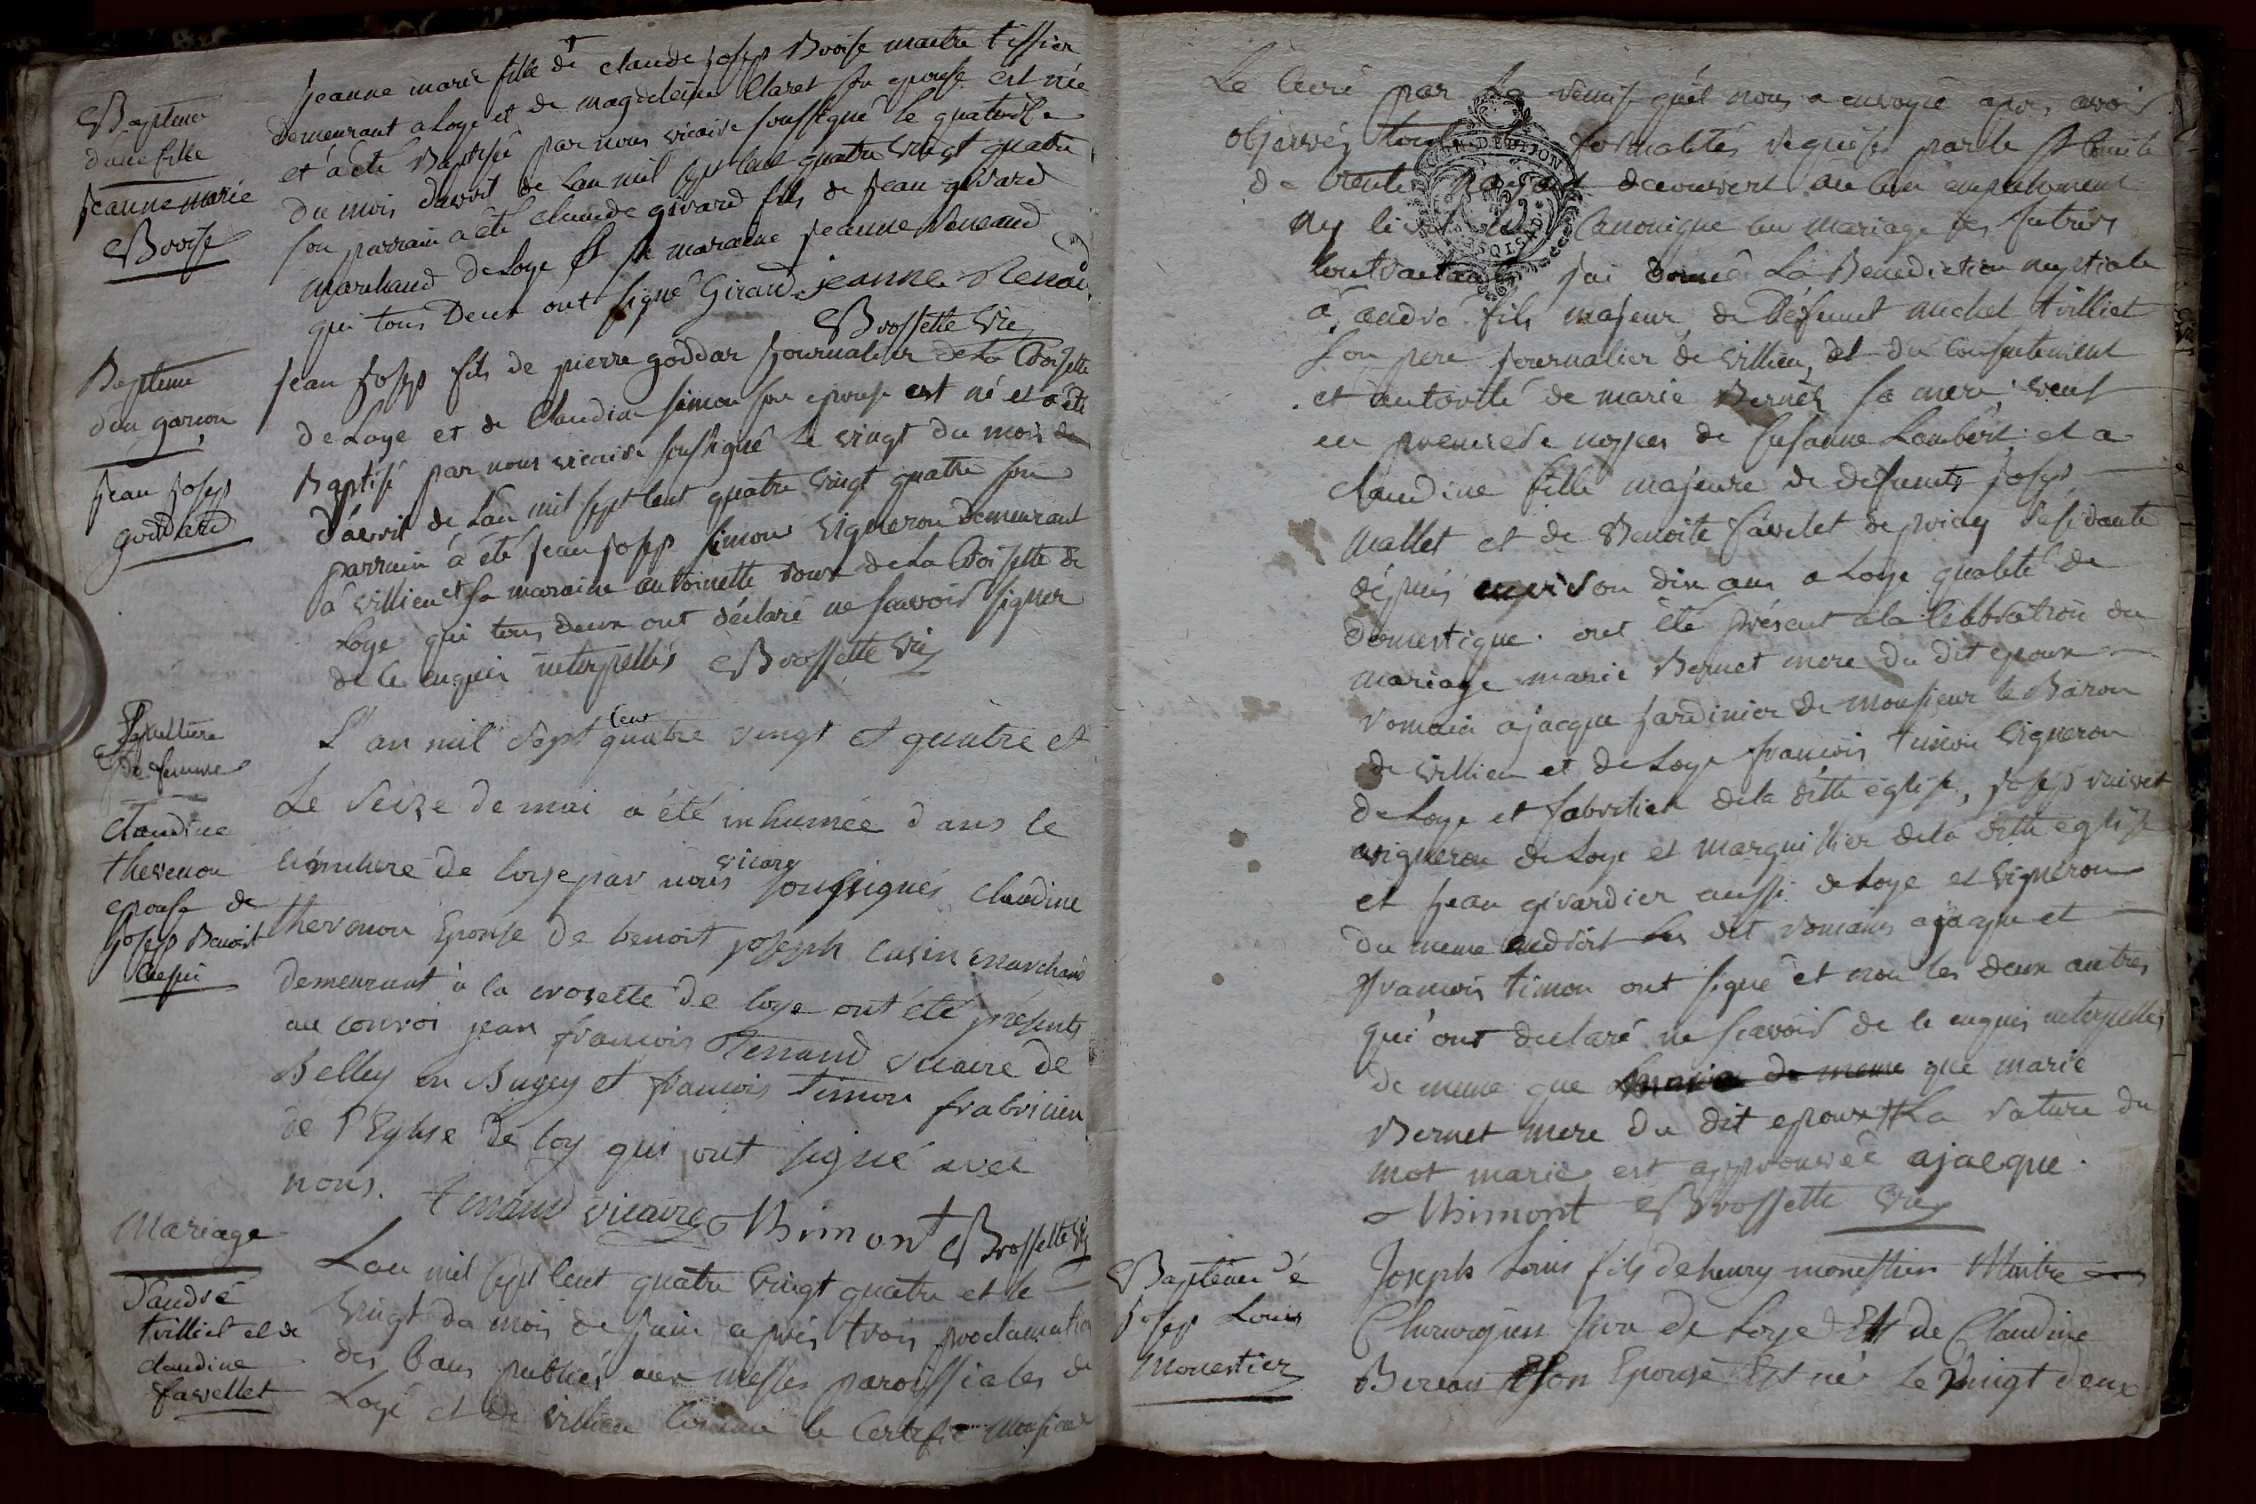 Baptême
d'une fille
Jeanne marie
Broise
Jeanne marie fille de claude Joseph Broise maitre tissier
demeurant a Loye et de magdeleine Claret son epouse est née
et a été Baptisé par nous vicaire soussigné le quatorze
du mois davril de Lan mil sept cent quatre vingt quatre
son parrain a été claude girard fils de jean girard
marchand de Loye et sa maraine jeanne Renaud
qui tous Deux ont signé Giraud jeanne Renaud
Brossette Vic
Baptême
d'un garcon
jean joseph
goddard
jean joseph fils de pierre goddar journalier de La Croisette
de Loye et de Claudine simon son epouse est né et a été
Baptisé par nous vicaire soussigné Le vingt du mois
d'avril de Lan mil sept cent quatre vingt quatre son
parrain a été jean joseph simon vigneron demeurant
a villieu et sa maraine antoinette roux de La Croisette de
Loye qui tous deux ont déclaré ne scavoir signer
de ce enquis interpellés Brossette Vic
Sepulture
de femme
Claudine
thevenon
epouse de
joseph Benoist
L'an mil sept cent quatre vingt et quatre et
Le seize de mai a été inhumée dans le
cimitiere de loye par nous vicaire soussignés claudine
thevenon Epouse de benoit joseph cusin marchand
demeurant à la croisette de loye ont été présents
au convoi jean francois Ferrand vicaire de
Belley en Bugey et francois timon fabricien
de l'Eglise de loy qui ont signé avec
nous. Ferrand vicaire Thimont Brossette Vic
Mariage
d'andré
trilliet et de
claudine
favellet
Lan mil sept cent quatre vingt quatre et le
vingt du mois de juin apres trois proclamations
des bans publiés aux messes paroissiales de
Loye et de villieu comme le certifie monsieur
Le Curé par La remise qu'il nous a envoyé apres avoir
observés toutes formalités requises par le st concile
de trente decouvert aucun empechement
ny civil canonique au mariage des futurs
contractants j'ai donné La Benediction nuptiale
a andré fils majeur de Défunt michel trilliet
son pere journalier de villieu, et du consentement
et autorité de marie Bernet sa mere veuf
en premiere noces de susanne Lambert et a
claudine fille majeure de defunts joseph
mallet et de Benoite favelet de residante
depuis environ dix ans a Loye qualité de
domestique. ont été présent a la célébration du
mariage marie Bernet mere du dit epoux
romain ajacque jardinier de monsieur le Baron
de villieu et de Loye francois timon vigneron
de Loye et fabricien de la ditte eglise, joseph
vigneron de Loye et marguillier de la ditte eglise
et jean girardier aussi de Loye et vigneron
du meme endroit Les dit romain ajacque et
francois timon ont signé et non les deux autres
qui ont declaré ne scavoir de ce enquis interpellés
de meme que que marie
Bernet mere du dit epoux La rature du
mot marie est approuvée ajacque.
Thimont Brossette Vic
Baptême de
joseph Louis
Monestier
Joseph Louis fils de henry monestier Maitre en
Chirurgien juré de Loye Et de Claudine
Son Epouse Est né Le vingt deux